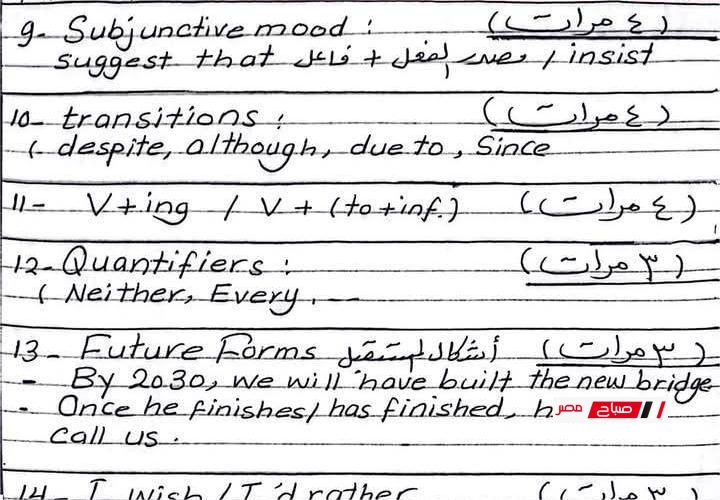 9- Subjunctive mood : (٤ مرات)
suggest that فاعل + مصدر الفعل / insist
10- transitions : (٤ مرات)
( despite, although, due to, Since
11- V+ing / V + (to+inf.) (٤ مرات)
12- Quantifiers : (٣ مرات)
( Neither, Every, --
13- Future Forms أشكال المستقبل (٣ مرات)
- By 2030, we will have built the new bridge
- Once he finishes/ has finished, h
صباح مصر
call us.
14- I wish / I'd rather (٣ مرات)